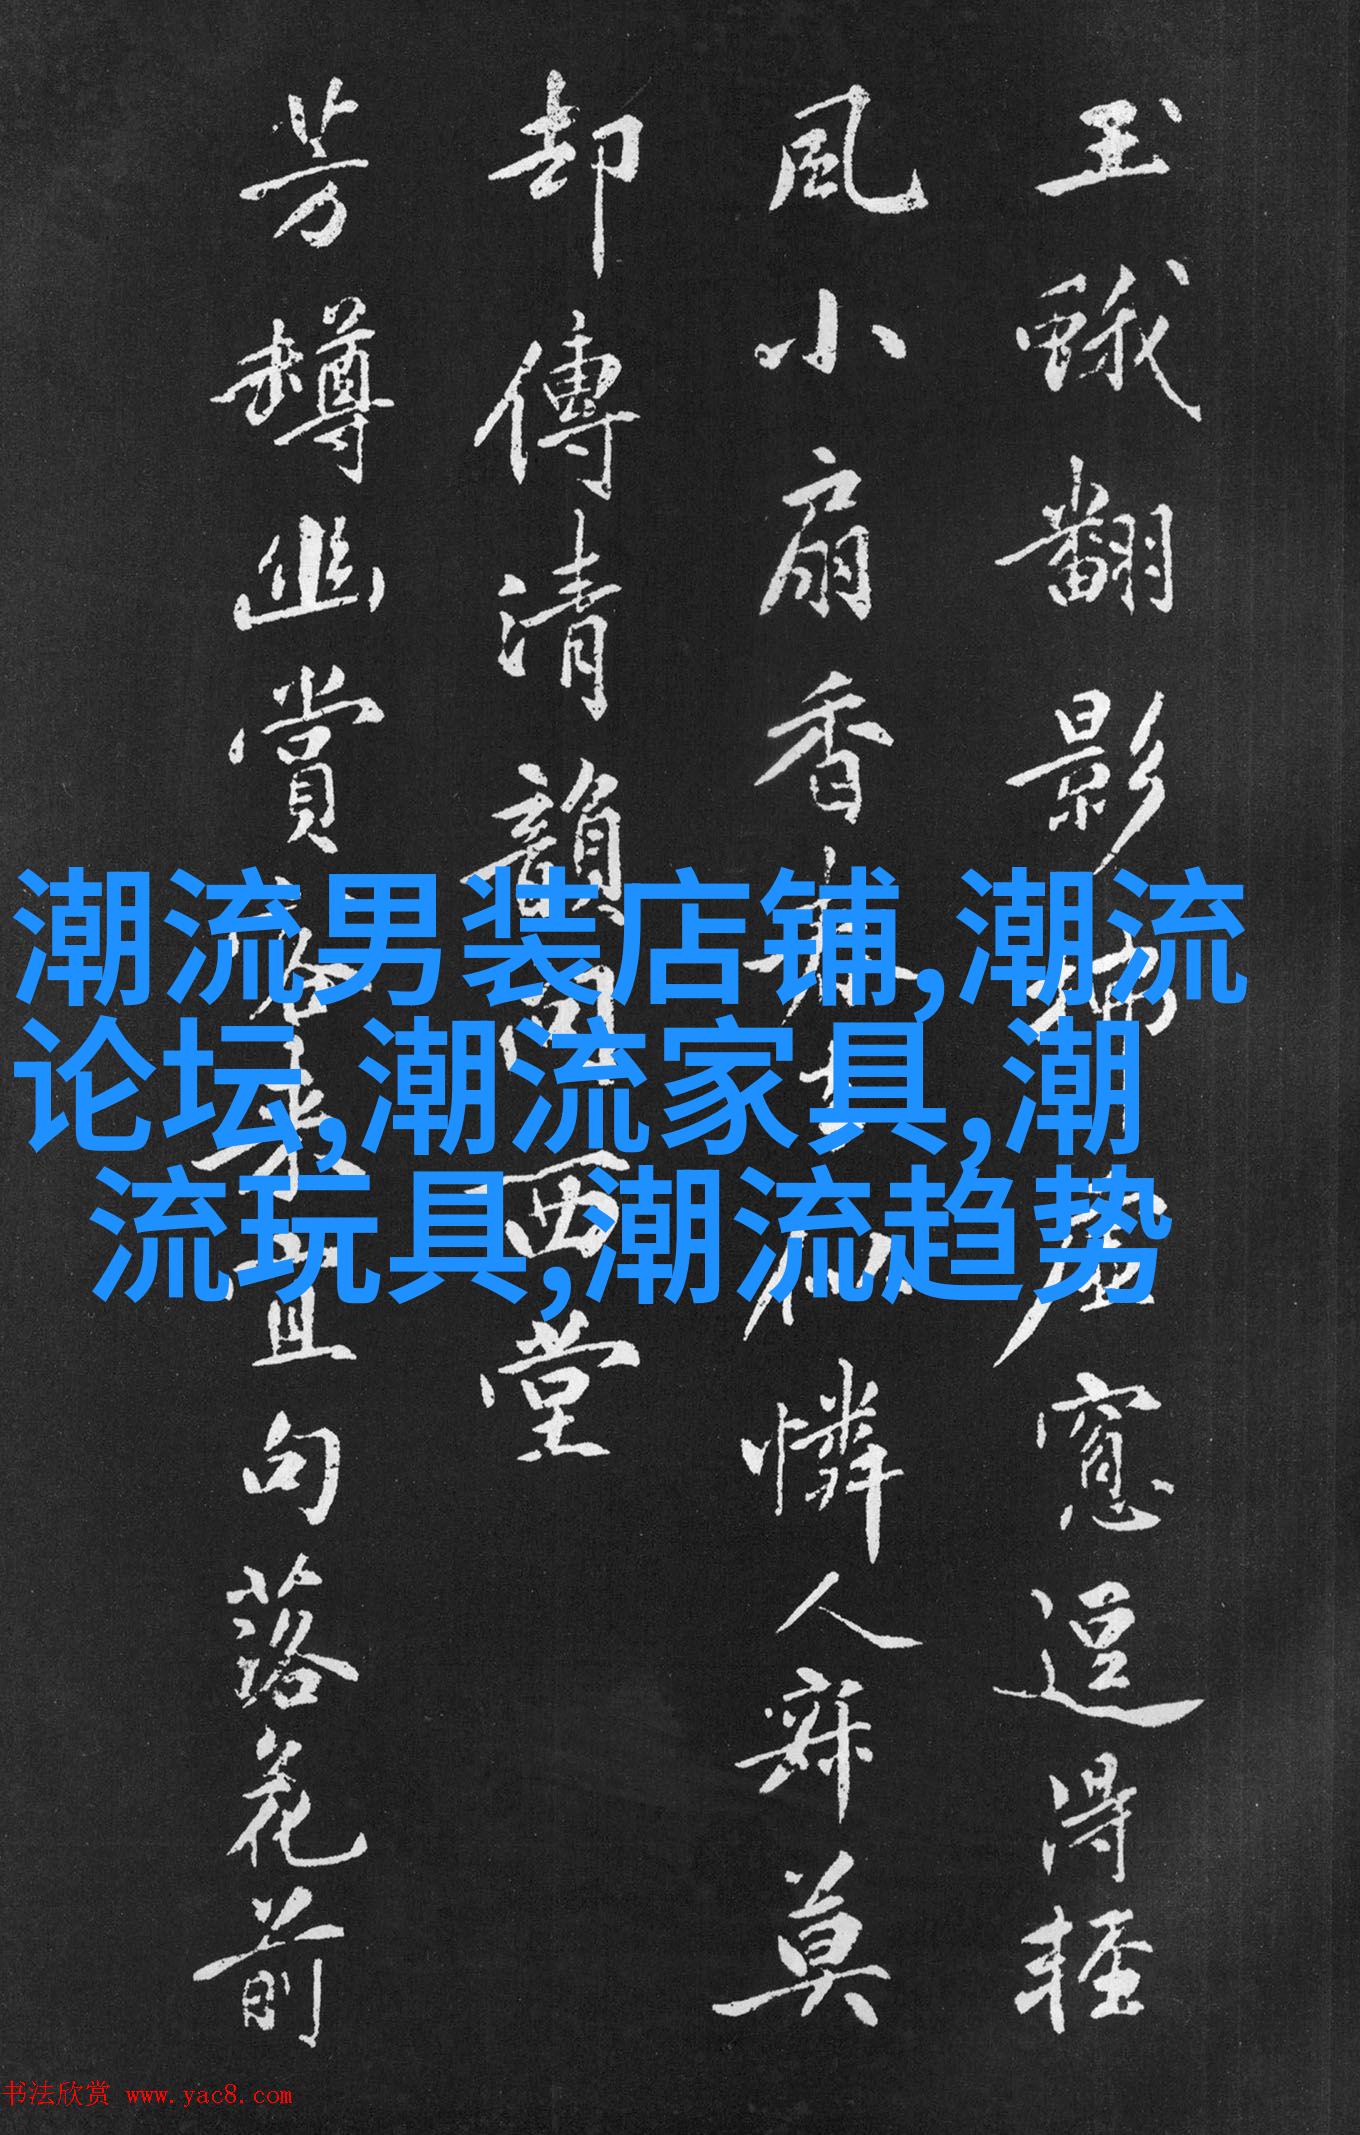 玉蛾翻影
窻逗得輕
風小扇香
憐人寐莫
却傳清韻
西堂
芳樽幽賞
句落花前
潮流男装店铺,潮流
论坛,潮流家具,潮
流玩具,潮流趋势
书法欣赏 www.yac8.com